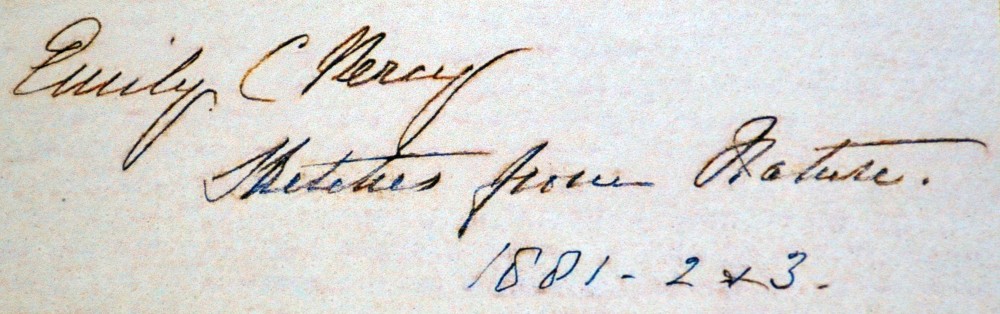 Emily C Percy
Sketches from Nature.
1881 - 2 & 3.